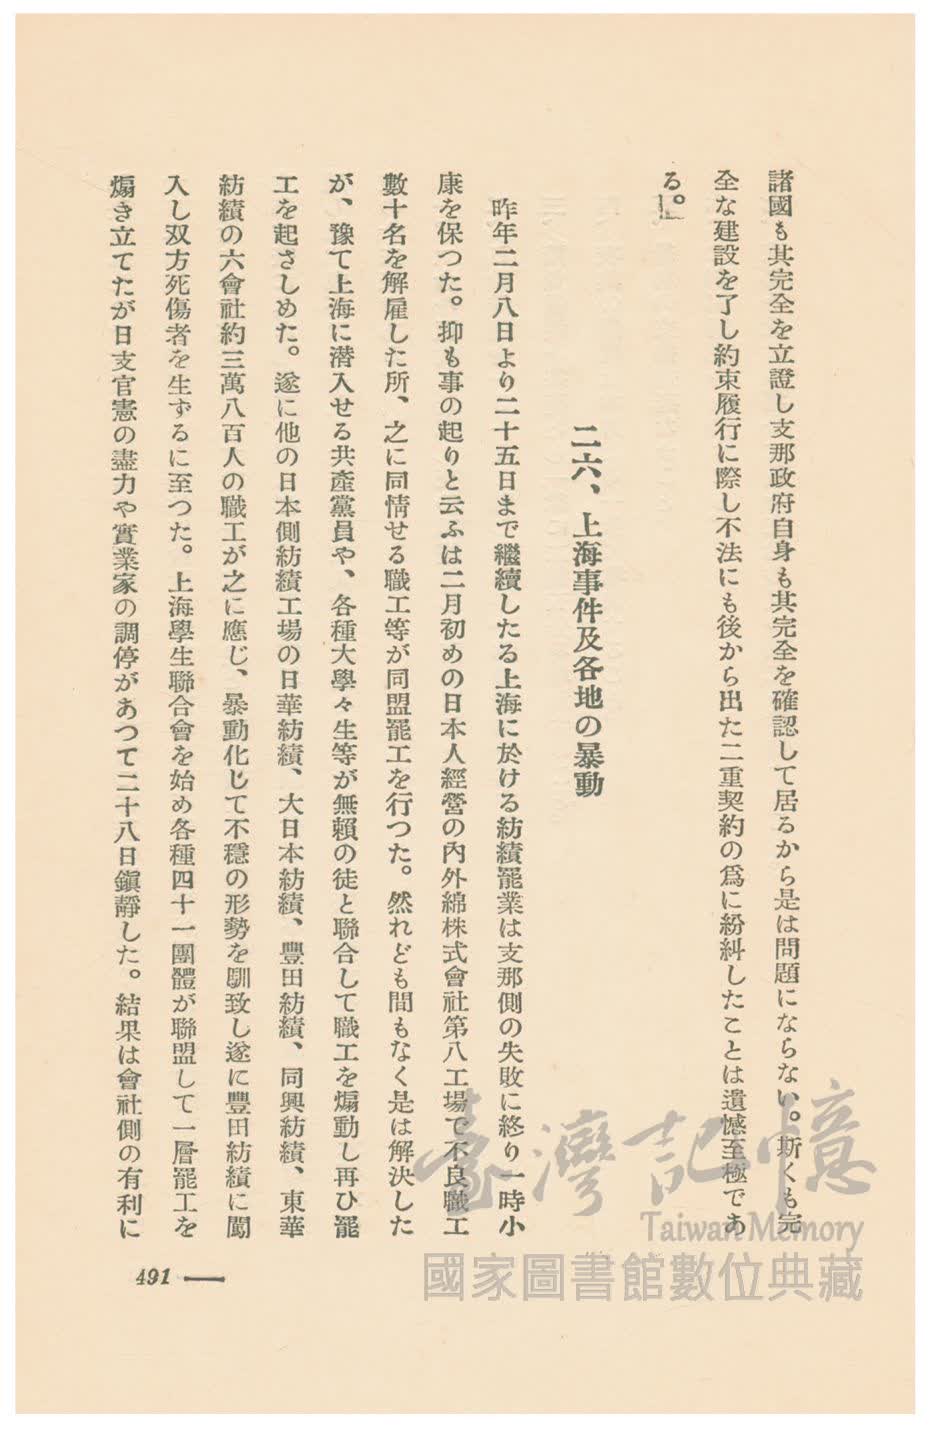 諸國も其完全を立證し支那政府自身も其完全を確認して居るから是は問題にならない。斯くも完
全な建設を了し約束履行に際し不法にも後から出た二重契約の爲に紛糾したことは遺憾至極であ
る。」
二六、上海事件及各地の暴動
昨年二月八日より二十五日まで繼續したる上海に於ける紡績罷業は支那側の失敗に終り一時小
康を保つた。抑も事の起りと云ふは二月初めの日本人經營の內外綿株式會社第八工場で不良職工
數十名を解雇した所、之に同情せる職工等が同盟罷工を行つた。然れども間もなく是は解決した
が、豫て上海に潜入せる共產黨員や、各種大學々生等が無賴の徒と聯合して職工を煽動し再ひ罷
工を起さしめた。遂に他の日本側紡績工場の日華紡績、大日本紡績、豐田紡績、同興紡績、東華
紡績の六會社約三萬八百人の職工が之に應じ、暴動化して不穩の形勢を馴致し遂に豐田紡績に闖
入し双方死傷者を生ずるに至つた。上海學生聯合會を始め各種四十一團體が聯盟して一層罷工を
煽き立てたが日支官憲の盡力や實業家の調停があつて二十八日鎭靜した。結果は會社側の有利に
491
臺灣記憶
Taiwan Memory
國家圖書館數位典藏